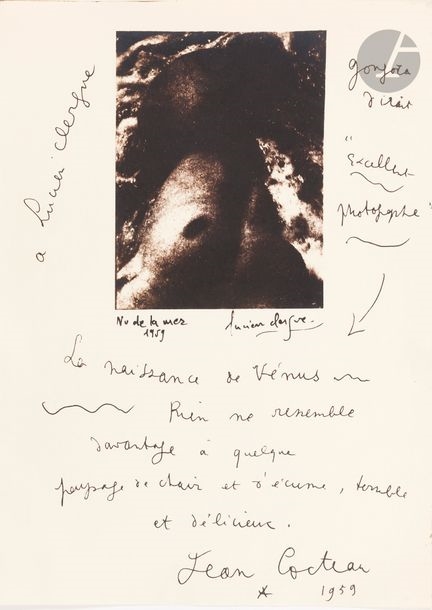 a Lucien Clergue
Gongora
disait
"Excellent
photographe"
Nu de la mer
1959
Lucien Clergue.
La naissance de Vénus
Rien ne ressemble
davantage à quelque
paysage de chair et d'écume, terrible
et délicieux.
Jean Cocteau
* 1959